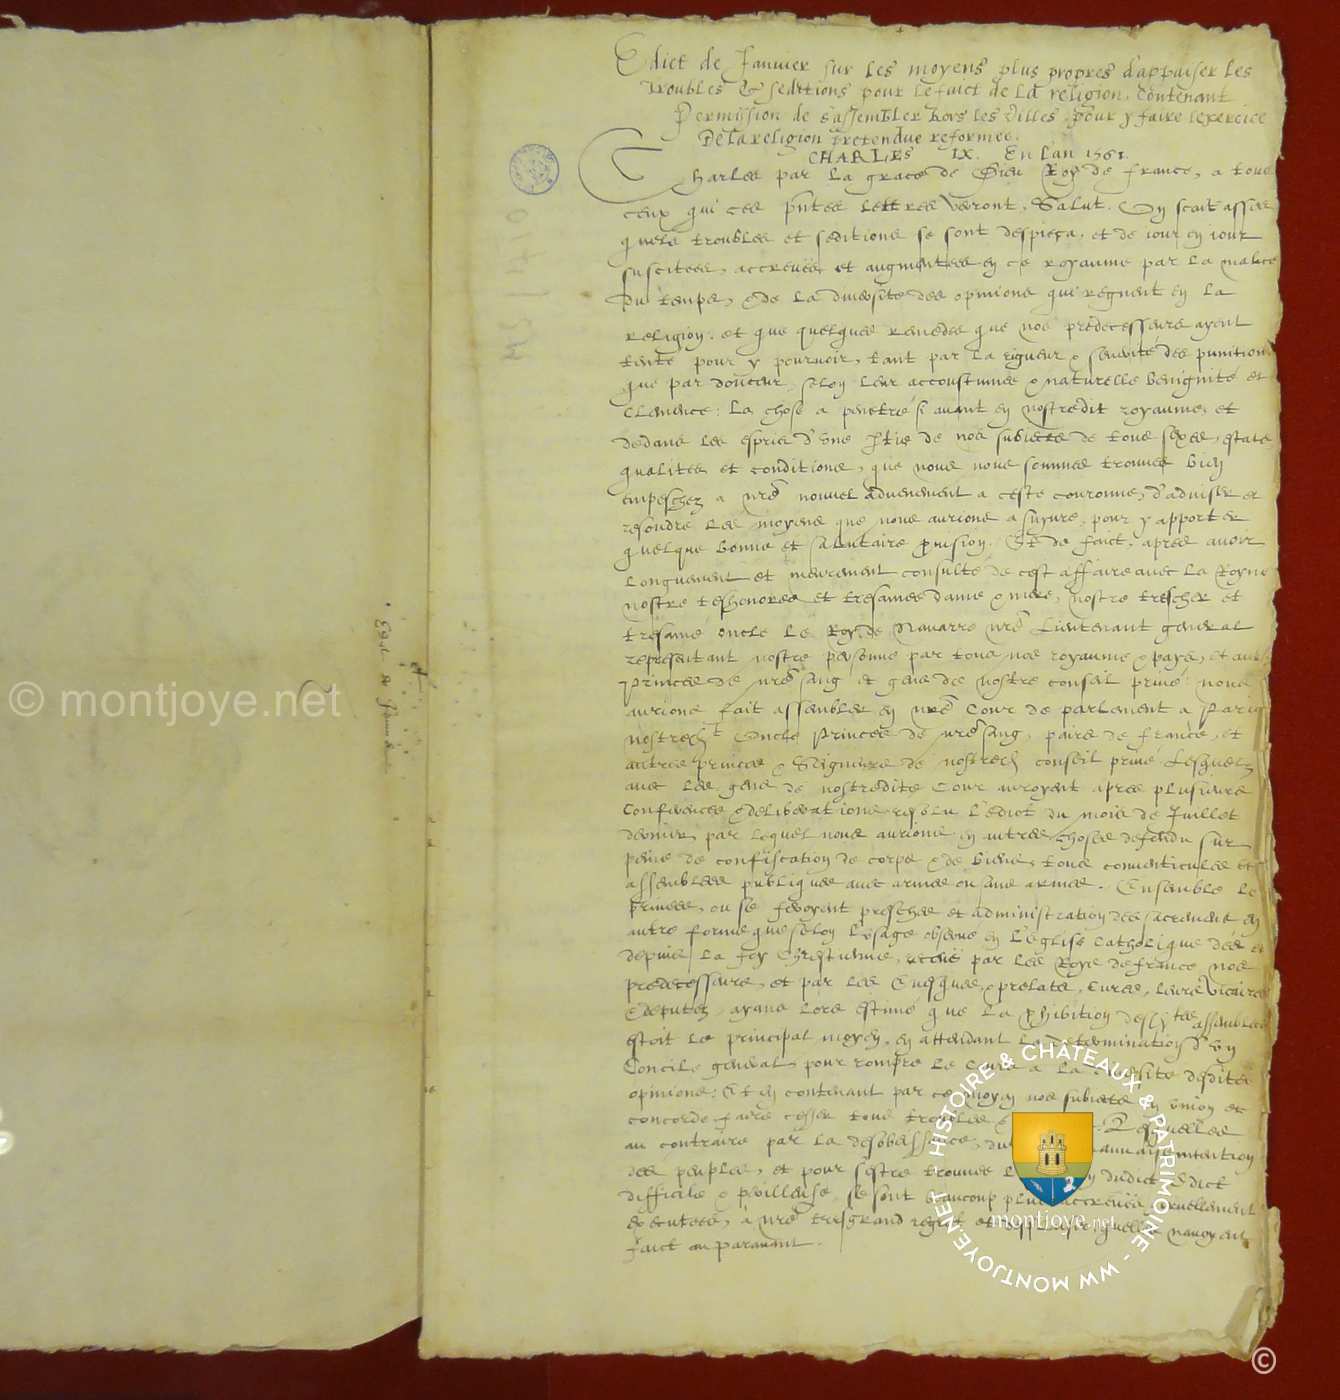 Edict de Janvier sur les moyens plus propres d'appaiser les
troubles & seditions pour le faict de la religion, contenant
Permission de s'assembler hors les Villes, pour y faire lexercice
De la religion pretendue reformee.
CHARLES IX. En l'an 1561.
Charles par la grace de Dieu Roy de france, a tous
ceux qui ces pntes lettres verront, Salut. On scait assez
quels troubles et seditions se sont despieça, et de iour en iour
suscitees, accreues et augmentees en ce royaume par la malice
du temps, & de la diversite des opinions qui regnent en la
religion, et que quelques remedes que nos predecesseurs ayent
tente pour y pourvoir, tant par la rigueur & severité des punitions
que par douceur, selon leur accoustumee & naturelle benignité et
clemence: la chose a penetré si avant en nostredit royaume, et
dedans les espris d'une ptie de nos subiects de tous sexes, estats,
qualites et conditions, que nous nous sommes trouves bien
empeschez a nre nouvel advenement a ceste couronne, d'adviser et
resoudre les moyens que nous aurions a suyvre, pour y apporter
quelque bonne et salutaire pvision. Et de faict, apres avoir
longuement et meurement consulté de cest affaire avec la Royne
nostre teshonoree et tresamee dame & mere, nostre trescher et
tresamé oncle le Roy de Navarre nre Lieutenant general
representant nostre personne par tous nos royaume & pays, et autres
Princes de nre sang et gens de nostre conseil privé: nous
aurions fait assembler en nre Cour de parlement a Paris
nostredt Oncle Princes de nre sang, pairs de france, et
autres princes & Seigneurs de nostred conseil privé Lesquelz
avec les gens de nostredite Cour auroyent apres plusieurs
conferences & deliberations resolu l'Edict du mois de Juillet
dernier, par lequel nous aurions en autres choses defendu sur
peine de confiscation de corps & de biens, tous conventicules et
assemblees publiques avec armes ou sans armes. Ensemble les
privees, ou se feroyent presches et administration des sacremens en
autre forme que selon l'usage observé en l'Eglise Catholique des et
depuis la foy Chrestienne, receue par les Roys de france nos
predecesseurs, et par les Evesques & prelats, Cures, leurs Vicaires
& deputez, ayans lors estimé que la phibition desdtes assemblees
estoit le principal moyen, en attendant la determination d'un
Concile general, pour rompre le cours a la diversite desdites
opinions: Et en contenant par ce moyen nos subiects en union et
concorde faire cesser tous troubles Lesquelles
au contraire par la desobeissance, du mauvaise intention
des peuples, et pour s'estre trouvee dudict Edict
difficile & perilleuse, se sont beaucoup plus accreues cruellement
executees, a nre tresgrand regret et desplaisir, quelles n'avoyent
faict au paravant.
© montjoye.net
WWW.MONTJOYE.NET - HISTOIRE & CHÂTEAUX & PATRIMOINE
montjoye.net
©